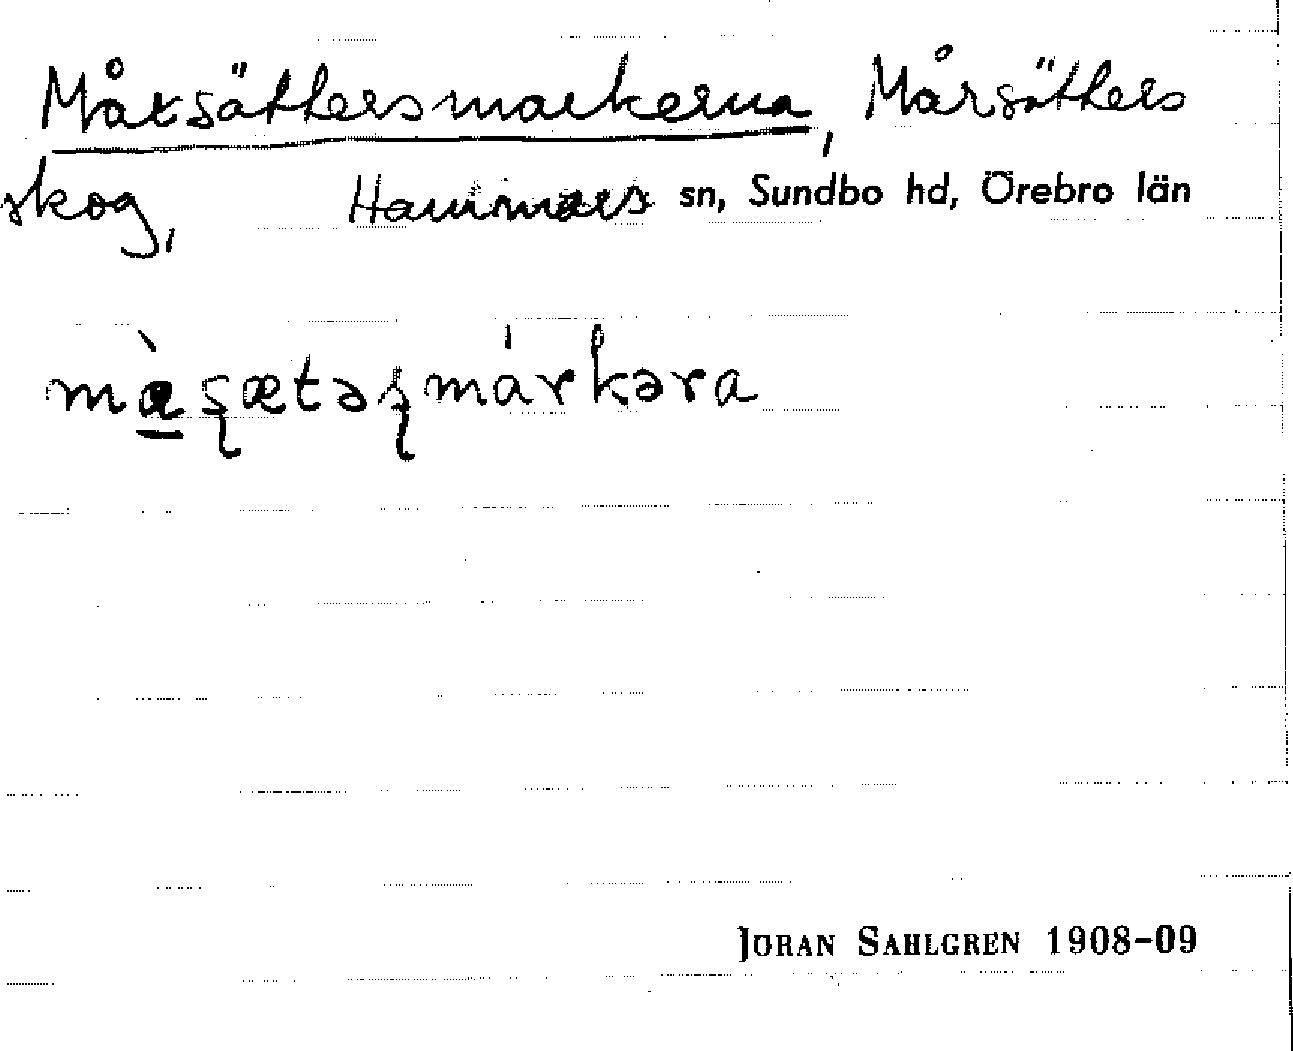 Mårsättersmarkerna, Mårsätters
skog, Hammars sn, Sundbo hd, Örebro län
màʂætəʂmárkəra
JÖRAN SAHLGREN 1908-09